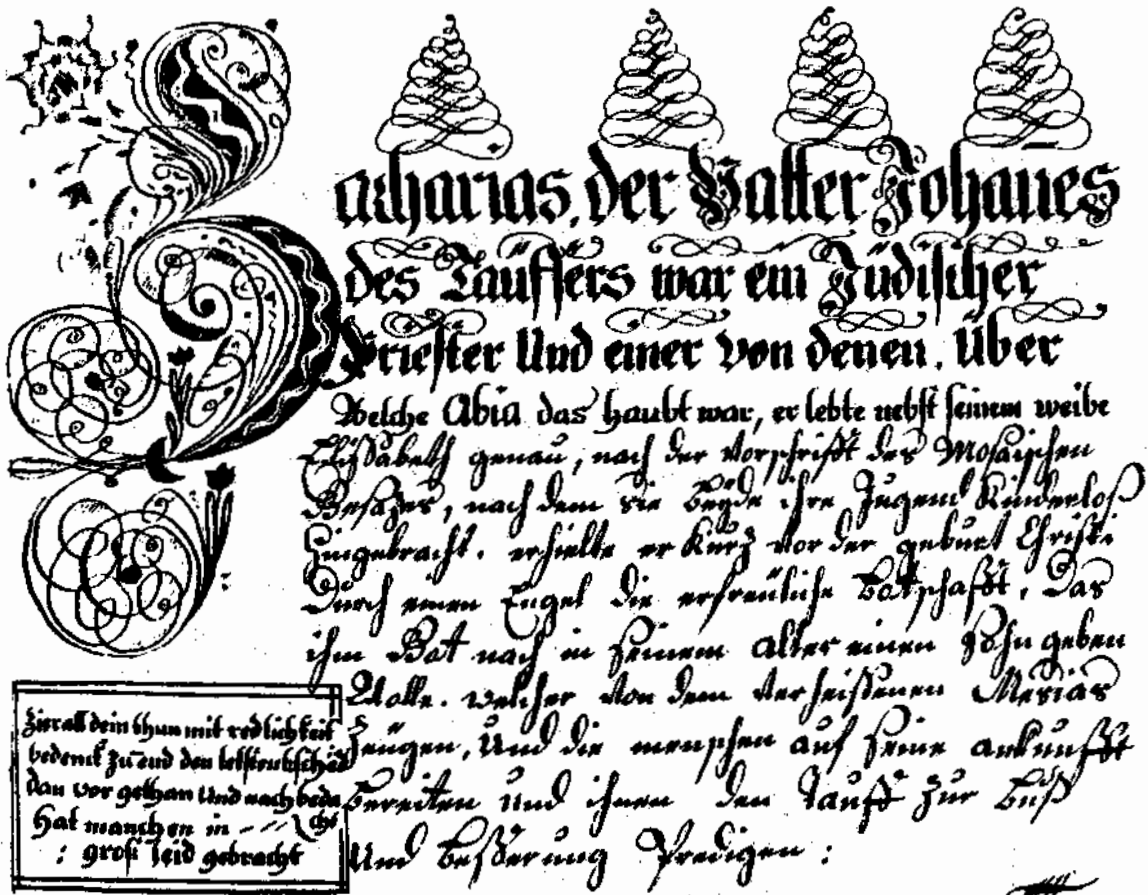 Zacharias, der Vatter Johañes
des Täuffers war ein Jüdischer
Priester Und einer von denen. Über
Welche Abia das haubt war, er lebte nebst seinem weibe
Elissabeth genau, nach der Vorschrifft des Mosaischen
Gesazes, nach dem sie beyde ihre Jugend Kinderloß
Zugebracht. erhielte er Kurz vor der geburt Christi
Durch einen Engel die erfreüliche Botschafft, Das
ihm Got noch in seinem alter einen Sohn geben
Wolle. welcher von dem verheissenen Mesias
Zeügen, Und die menschen auf seine ankunfft
bereiten Und ihnen den Tauff zur buß
Und besserung Predigen :
Zier all dein thun mit redlichkeit
bedenck zu end den letsten bscheid
dan vor gethan Und nach beda
cht
Hat manchen in
: groß leid gebracht